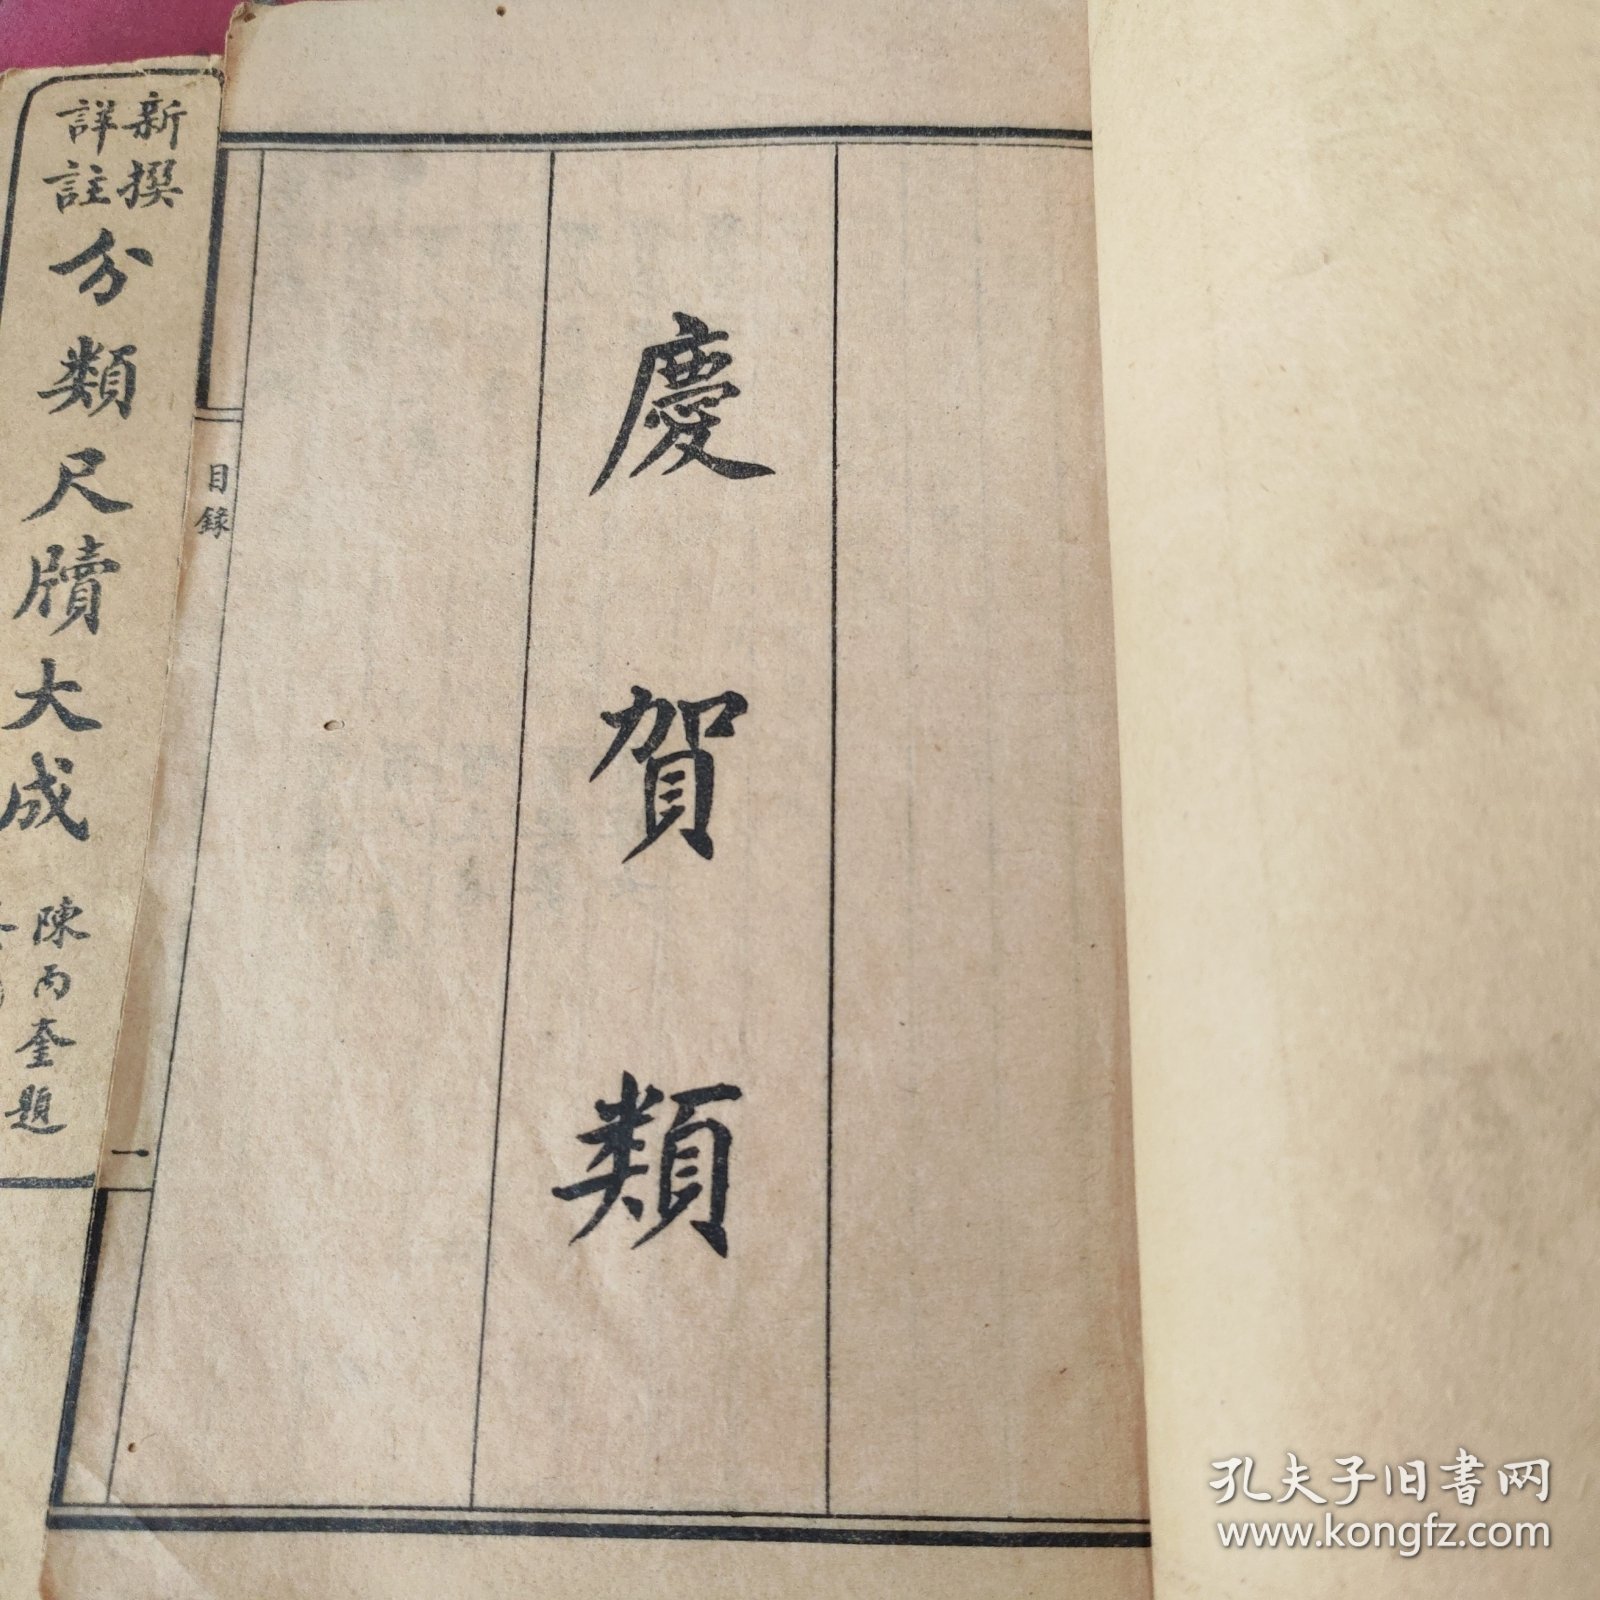 慶賀類
目錄
一
新撰
詳註
分類尺牘大成
陳丙奎題
孔夫子旧書网
www.kongfz.com